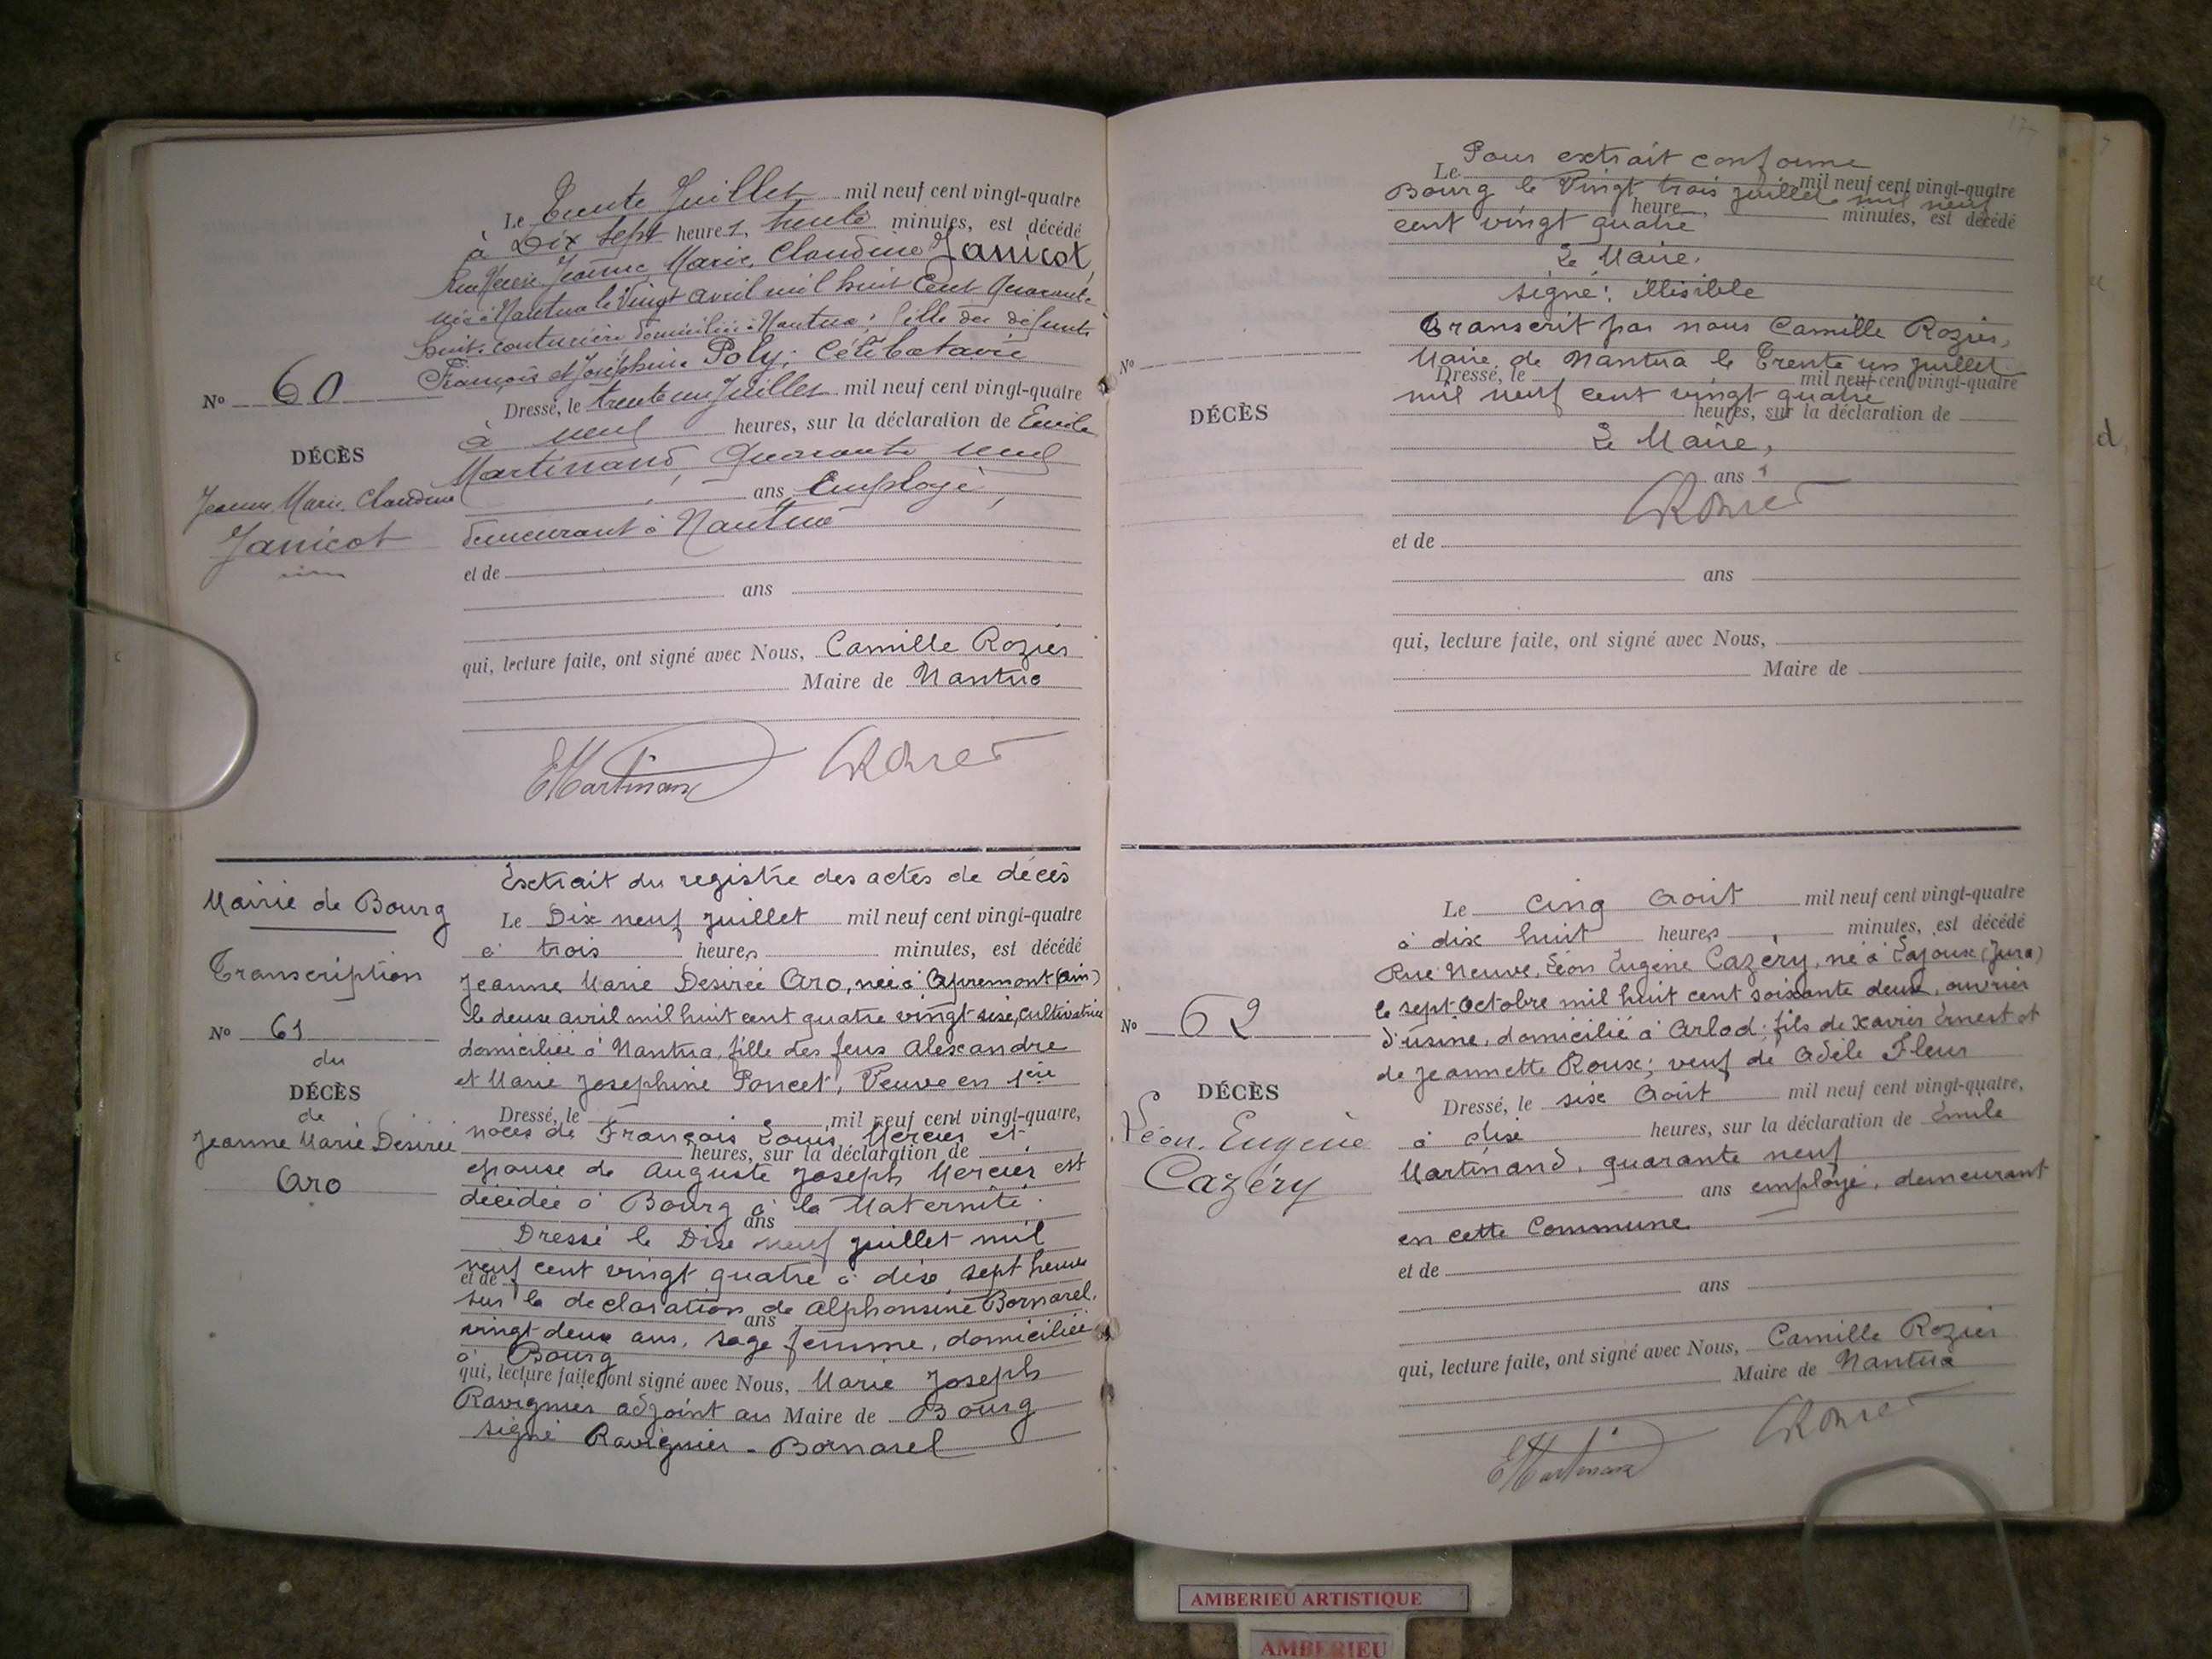 Le Trente Juillet mil neuf cent vingt-quatre
à Dix sept heures, trente minutes, est décédé
Jeanne Marie Claudine Janicot,
née à Nantua le Vingt avril mil huit Cent Quarante
huit. couturière domiciliée à Nantua; fille des défunts
François et Joséphine Poly; Célibataire
No 60
Dressé, le trente un Juillet mil neuf cent vingt-quatre
à neuf heures, sur la déclaration de Emile
DÉCÈS
Martinand, Quarante neuf
Jeanne Marie Claudine
ans, Employé,
Janicot
demeurant à Nantua
et de
ans
qui, lecture faite, ont signé avec Nous, Camille Rozier
Maire de Nantua
EMartinand
Extrait du registre des actes de décès
Mairie de Bourg
Le Dix neuf juillet mil neuf cent vingt-quatre
à trois heures minutes, est décédé
Transcription
Jeanne Marie Desirée Aro, née à Apremont (Ain)
le deux avril mil huit cent quatre vingt-six, cultivatrice
No 61
domiciliée à Nantua, fille des feus Alexandre
du
et Marie Josephine Poncet, Veuve en 1ere
DÉCÈS
Dressé, le mil neuf cent vingt-quatre,
de
noces de François Louis Mercier et
Jeanne Marie Desirée
heures, sur la déclaration de
epouse de Auguste Joseph Mercier est
Aro
décédée à Bourg à la Maternité.
ans
Dressé le Dix neuf juillet mil
neuf cent vingt quatre à dix sept heures
et de
sur la declaration de Alphonsine Bornarel,
ans
vingt-deux ans, sage femme, domiciliée
à Bourg
qui, lecture faite, ont signé avec Nous, Marie Joseph
Ravignier adjoint au Maire de Bourg
signé Ravignier - Bornarel
Pour extrait conforme
Le mil neuf cent vingt-quatre
Bourg le Vingt trois juillet mil neuf
heure minutes, est décédé
cent vingt quatre
Le Maire.
signé: illisible
Transcrit par nous Camille Rozier,
No
Maire de Nantua le Trente un juillet
Dressé, le mil neuf cent vingt-quatre
mil neuf cent vingt quatre
DÉCÈS
heures, sur la déclaration de
Le Maire,
ans
et de
ans
qui, lecture faite, ont signé avec Nous,
Maire de
Le cinq Août mil neuf cent vingt-quatre
à dix huit heures minutes, est décédé
Rue Neuve, Léon Eugène Cazéry, né à Lajoux (Jura)
le sept Octobre mil huit cent soixante deux, ouvrier
No 62
d'usine, domicilié à Arlod; fils de Xavier Ernest et
de Jeannette Roux; veuf de Adèle Fleur
DÉCÈS
Dressé, le six Août mil neuf cent vingt-quatre,
Léon, Eugène
à dix heures, sur la déclaration de Emile
Cazéry
Martinand, quarante neuf
ans employé, demeurant
en cette Commune
et de
ans
qui, lecture faite, ont signé avec Nous, Camille Rozier
Maire de Nantua
EMartinand
AMBERIEU ARTISTIQUE
AMBERIEU